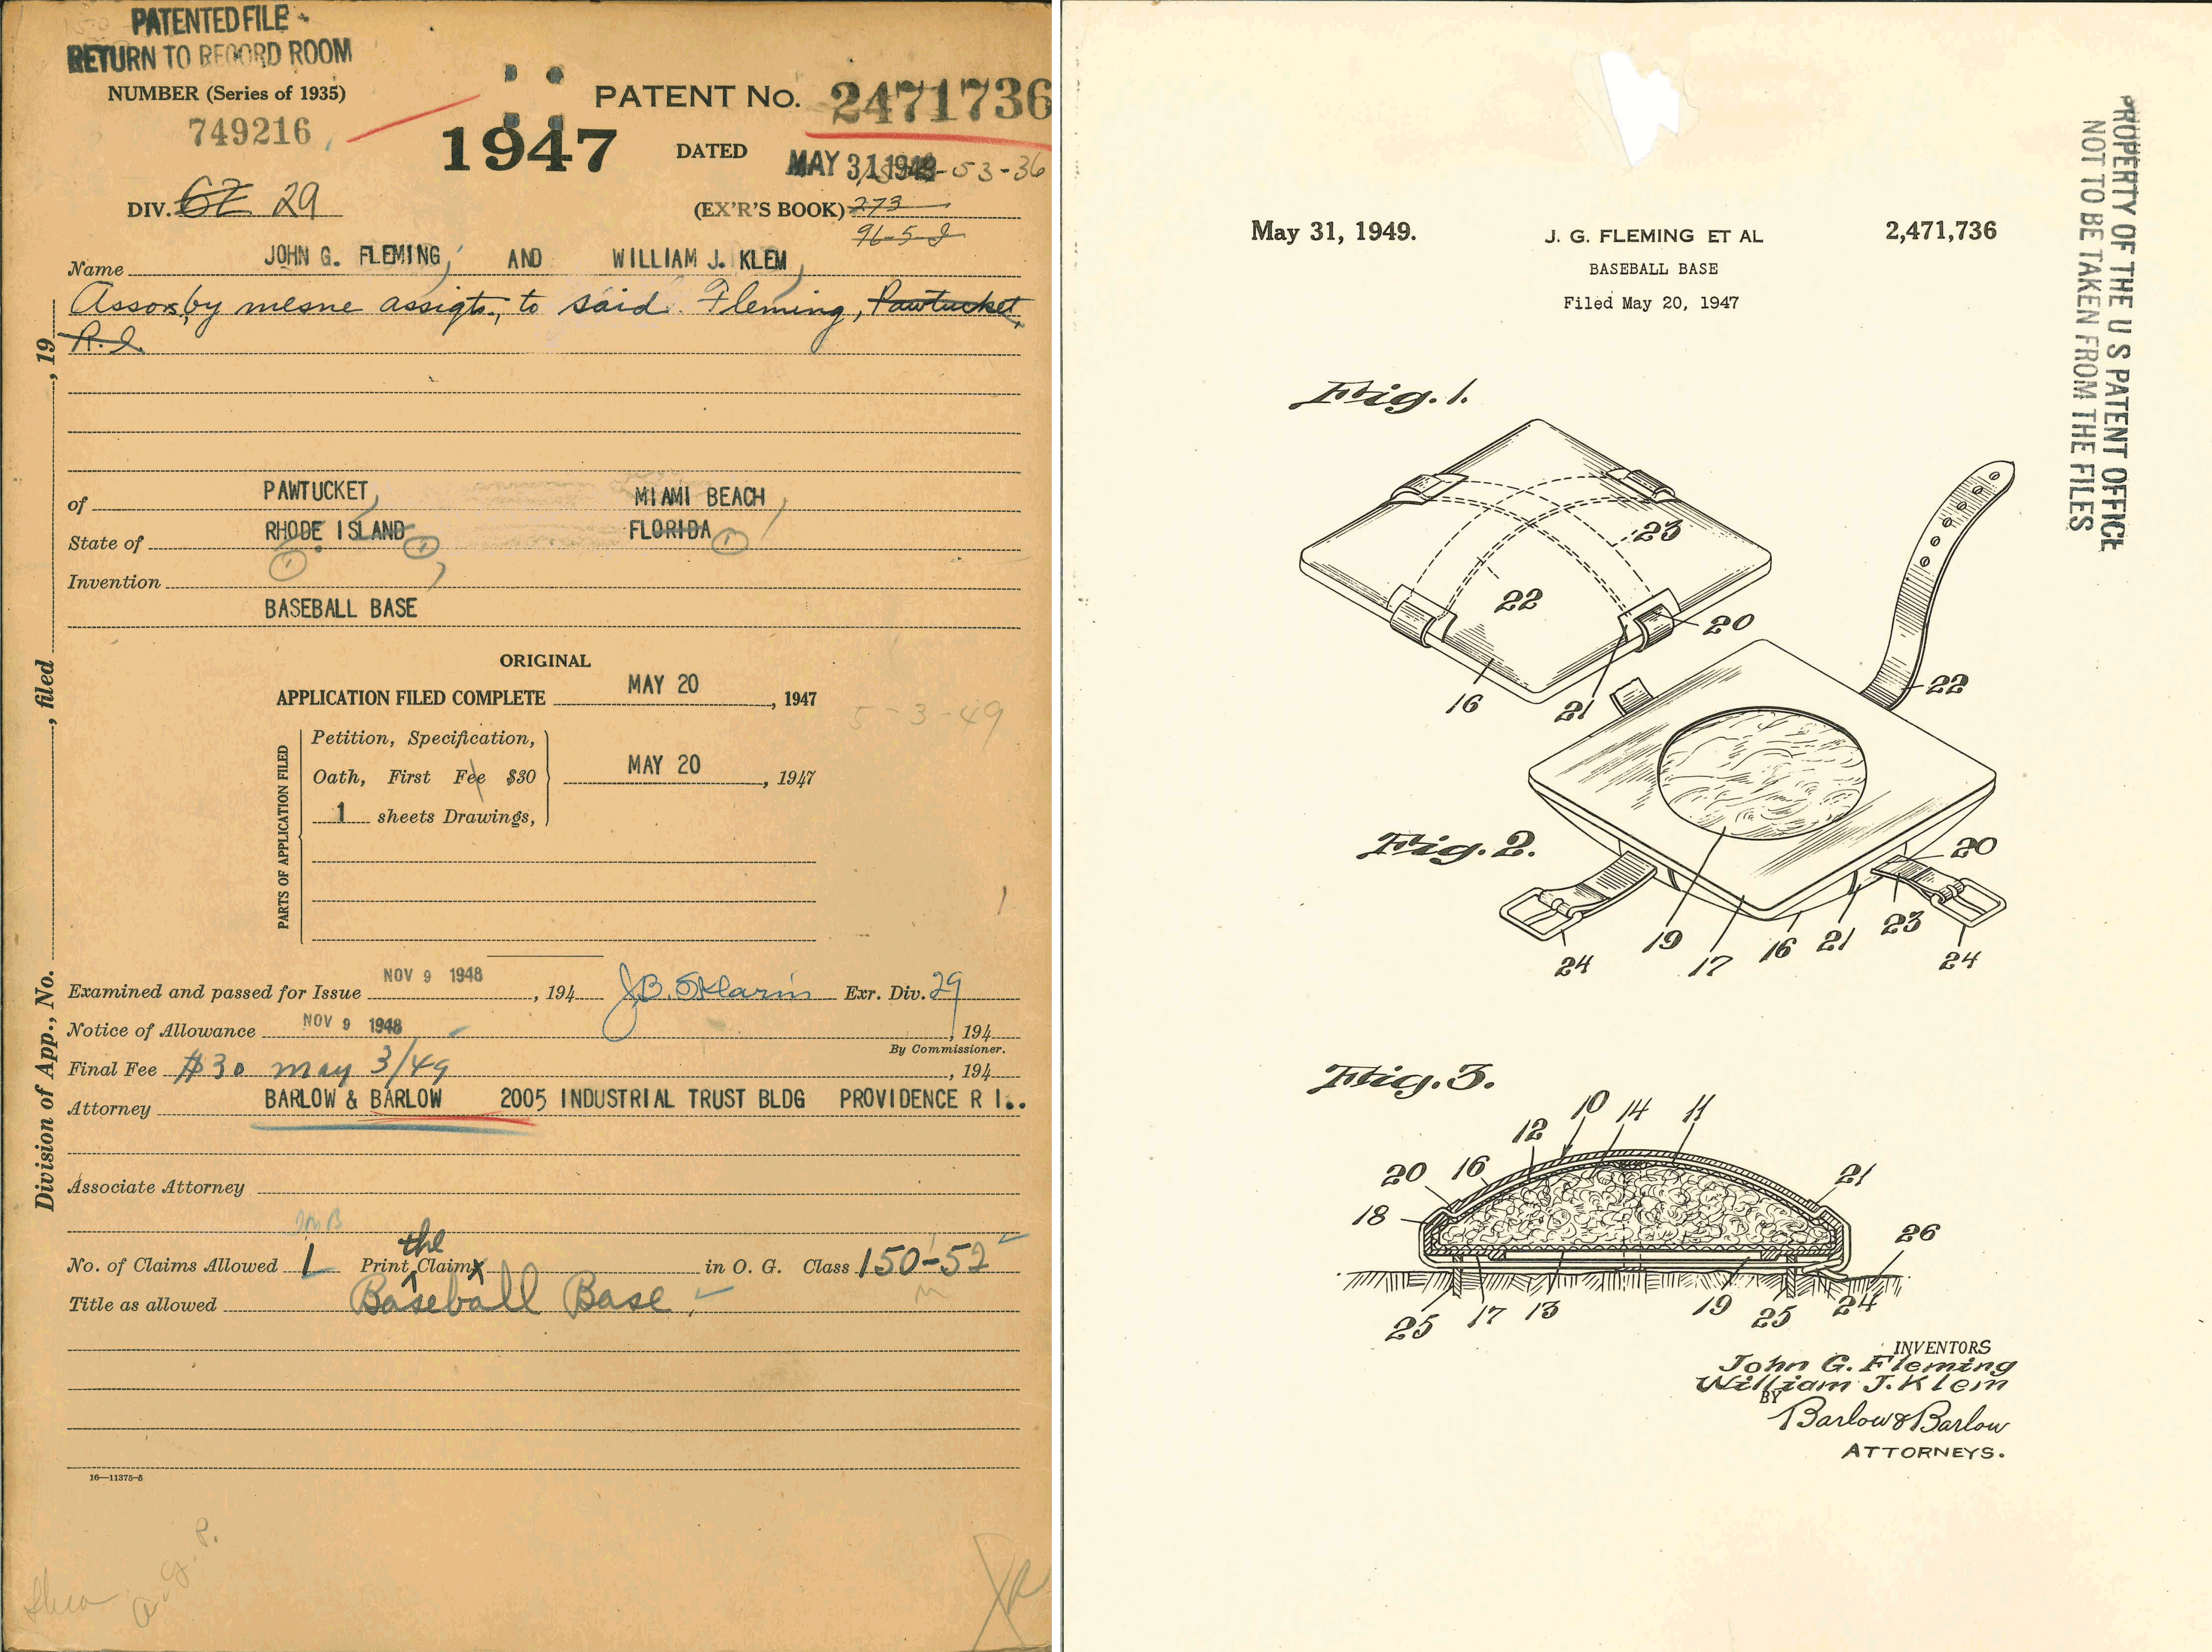 PATENTED FILE
RETURN TO RECORD ROOM
NUMBER (Series of 1935)
749216
1947
PATENT No. 2471736
DATED MAY 31 1949 -53-36
DIV. 29
(EX'R'S BOOK) 273
96-5-2
Name JOHN G. FLEMING, AND WILLIAM J. KLEM,
Assors, by mesne assigts., to said Fleming, Pawtucket,
R.I.
of PAWTUCKET, MIAMI BEACH,
State of RHODE ISLAND 1 FLORIDA 1
1
Invention
BASEBALL BASE
ORIGINAL
APPLICATION FILED COMPLETE MAY 20, 1947
5-3-49
PARTS OF APPLICATION FILED
Petition, Specification,
Oath, First Fee $30 MAY 20, 1947
1 sheets Drawings,
Examined and passed for Issue NOV 9 1948, 194 Exr. Div. 29
Notice of Allowance NOV 9 1948, 194
By Commissioner.
Final Fee $30 May 3/49, 194
Attorney BARLOW & BARLOW 2005 INDUSTRIAL TRUST BLDG PROVIDENCE R I..
Associate Attorney
No. of Claims Allowed 1 Print the Claim in O. G. Class 150-52
Title as allowed Baseball Base
16—11375-5
Division of App., No. , filed , 19
May 31, 1949.
J. G. FLEMING ET AL
2,471,736
BASEBALL BASE
Filed May 20, 1947
PROPERTY OF THE U S PATENT OFFICE
NOT TO BE TAKEN FROM THE FILES
Fig. 1.
23
22
20
16
21
22
Fig. 2.
20
24
19
17
16
21
23
24
Fig. 3.
10 14 11
12
20 16 21
18
26
25 17 13 19 25 24
INVENTORS
John G. Fleming
William J. Klem
BY
Barlow & Barlow
ATTORNEYS.